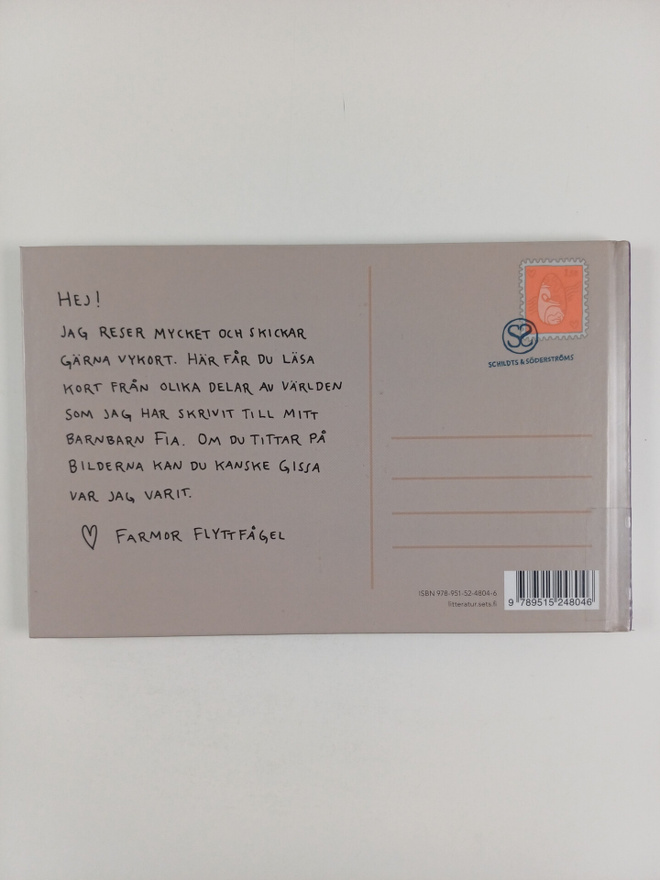 HEJ!
JAG RESER MYCKET OCH SKICKAR
GÄRNA VYKORT. HÄR FÅR DU LÄSA
KORT FRÅN OLIKA DELAR AV VÄRLDEN
SOM JAG HAR SKRIVIT TILL MITT
BARNBARN FIA. OM DU TITTAR PÅ
BILDERNA KAN DU KANSKE GISSA
VAR JAG VARIT.
♡ FARMOR FLYTTFÅGEL
SCHILDTS & SÖDERSTRÖMS
ISBN 978-951-52-4804-6
litteratur.sets.fi
9 789515 248046